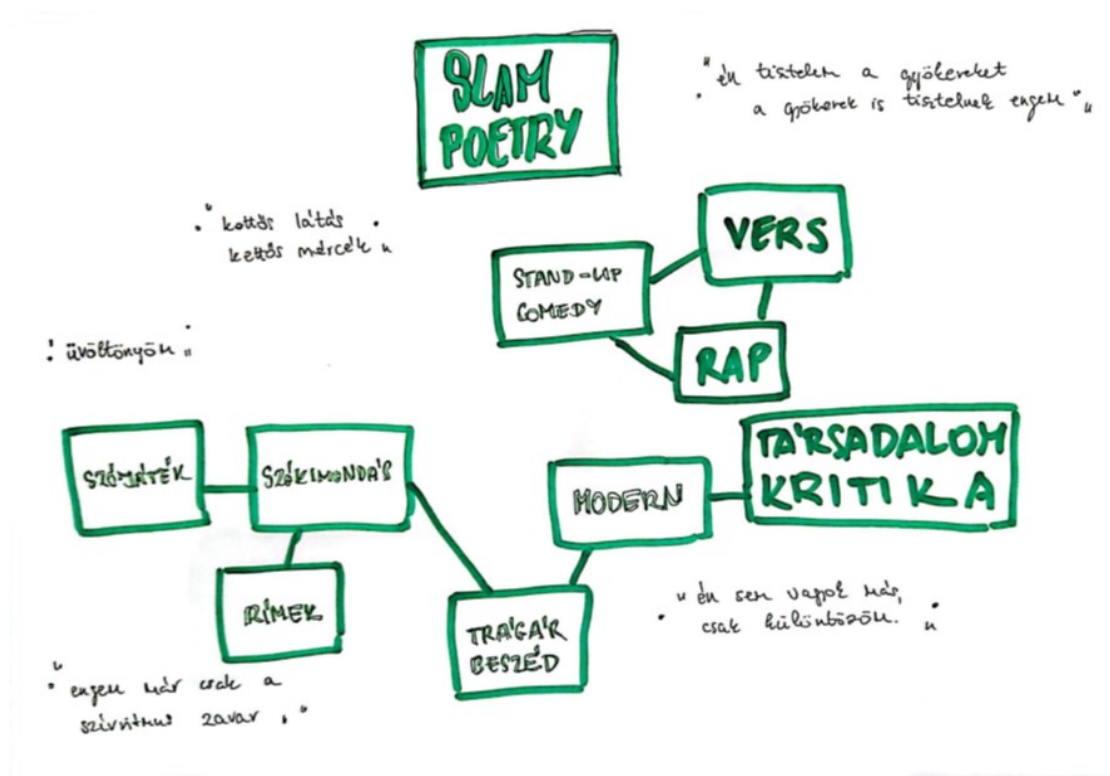 SLAM
POETRY
"én tisztelem a gyökereket
a gyökerek is tisztelnek engem"
"kettős látás
kettős mércék"
VERS
STAND-UP
COMEDY
RAP
"üvöltönyöm"
SZÓJÁTÉK
SZÓKIMONDÁS
RÍMEK
TRÁGÁR
BESZÉD
MODERN
TÁRSADALOM
KRITIKA
"én sem vagyok más,
csak különbözöm."
"engem már csak a
szívritmus zavar."